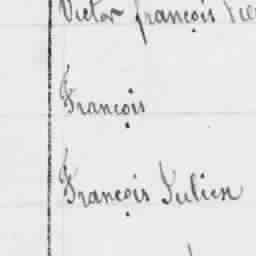 Victor françois
François
François Julien